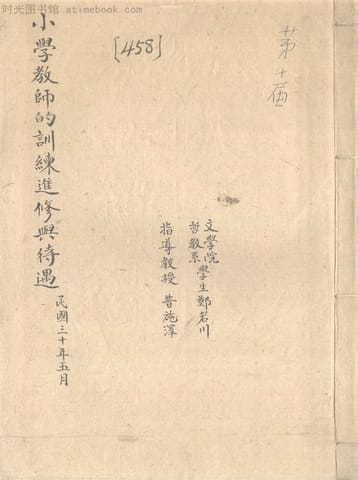 时光图书馆 - atimebook.com
第十届
[458]
小學教師的訓練進修與待遇
民國三十年五月
文學院
哲教系
學生鄭若川
指導教授 普施澤